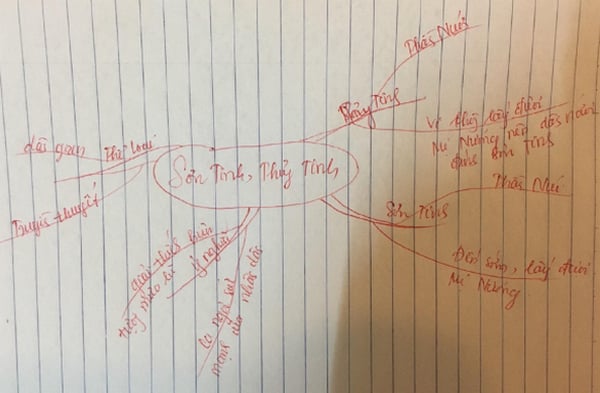 Sơn Tinh, Thủy Tinh
Thủy Tinh
Thần Nước
Vì không lấy được
Mị Nương nên dâng nước
đánh Sơn Tinh
Sơn Tinh
Thần Núi
Đến sớm, lấy được
Mị Nương
Thể loại
dân gian
Truyền thuyết
ý nghĩa
giải thích hiện
tượng
ca ngợi sức
mạnh của nhân dân